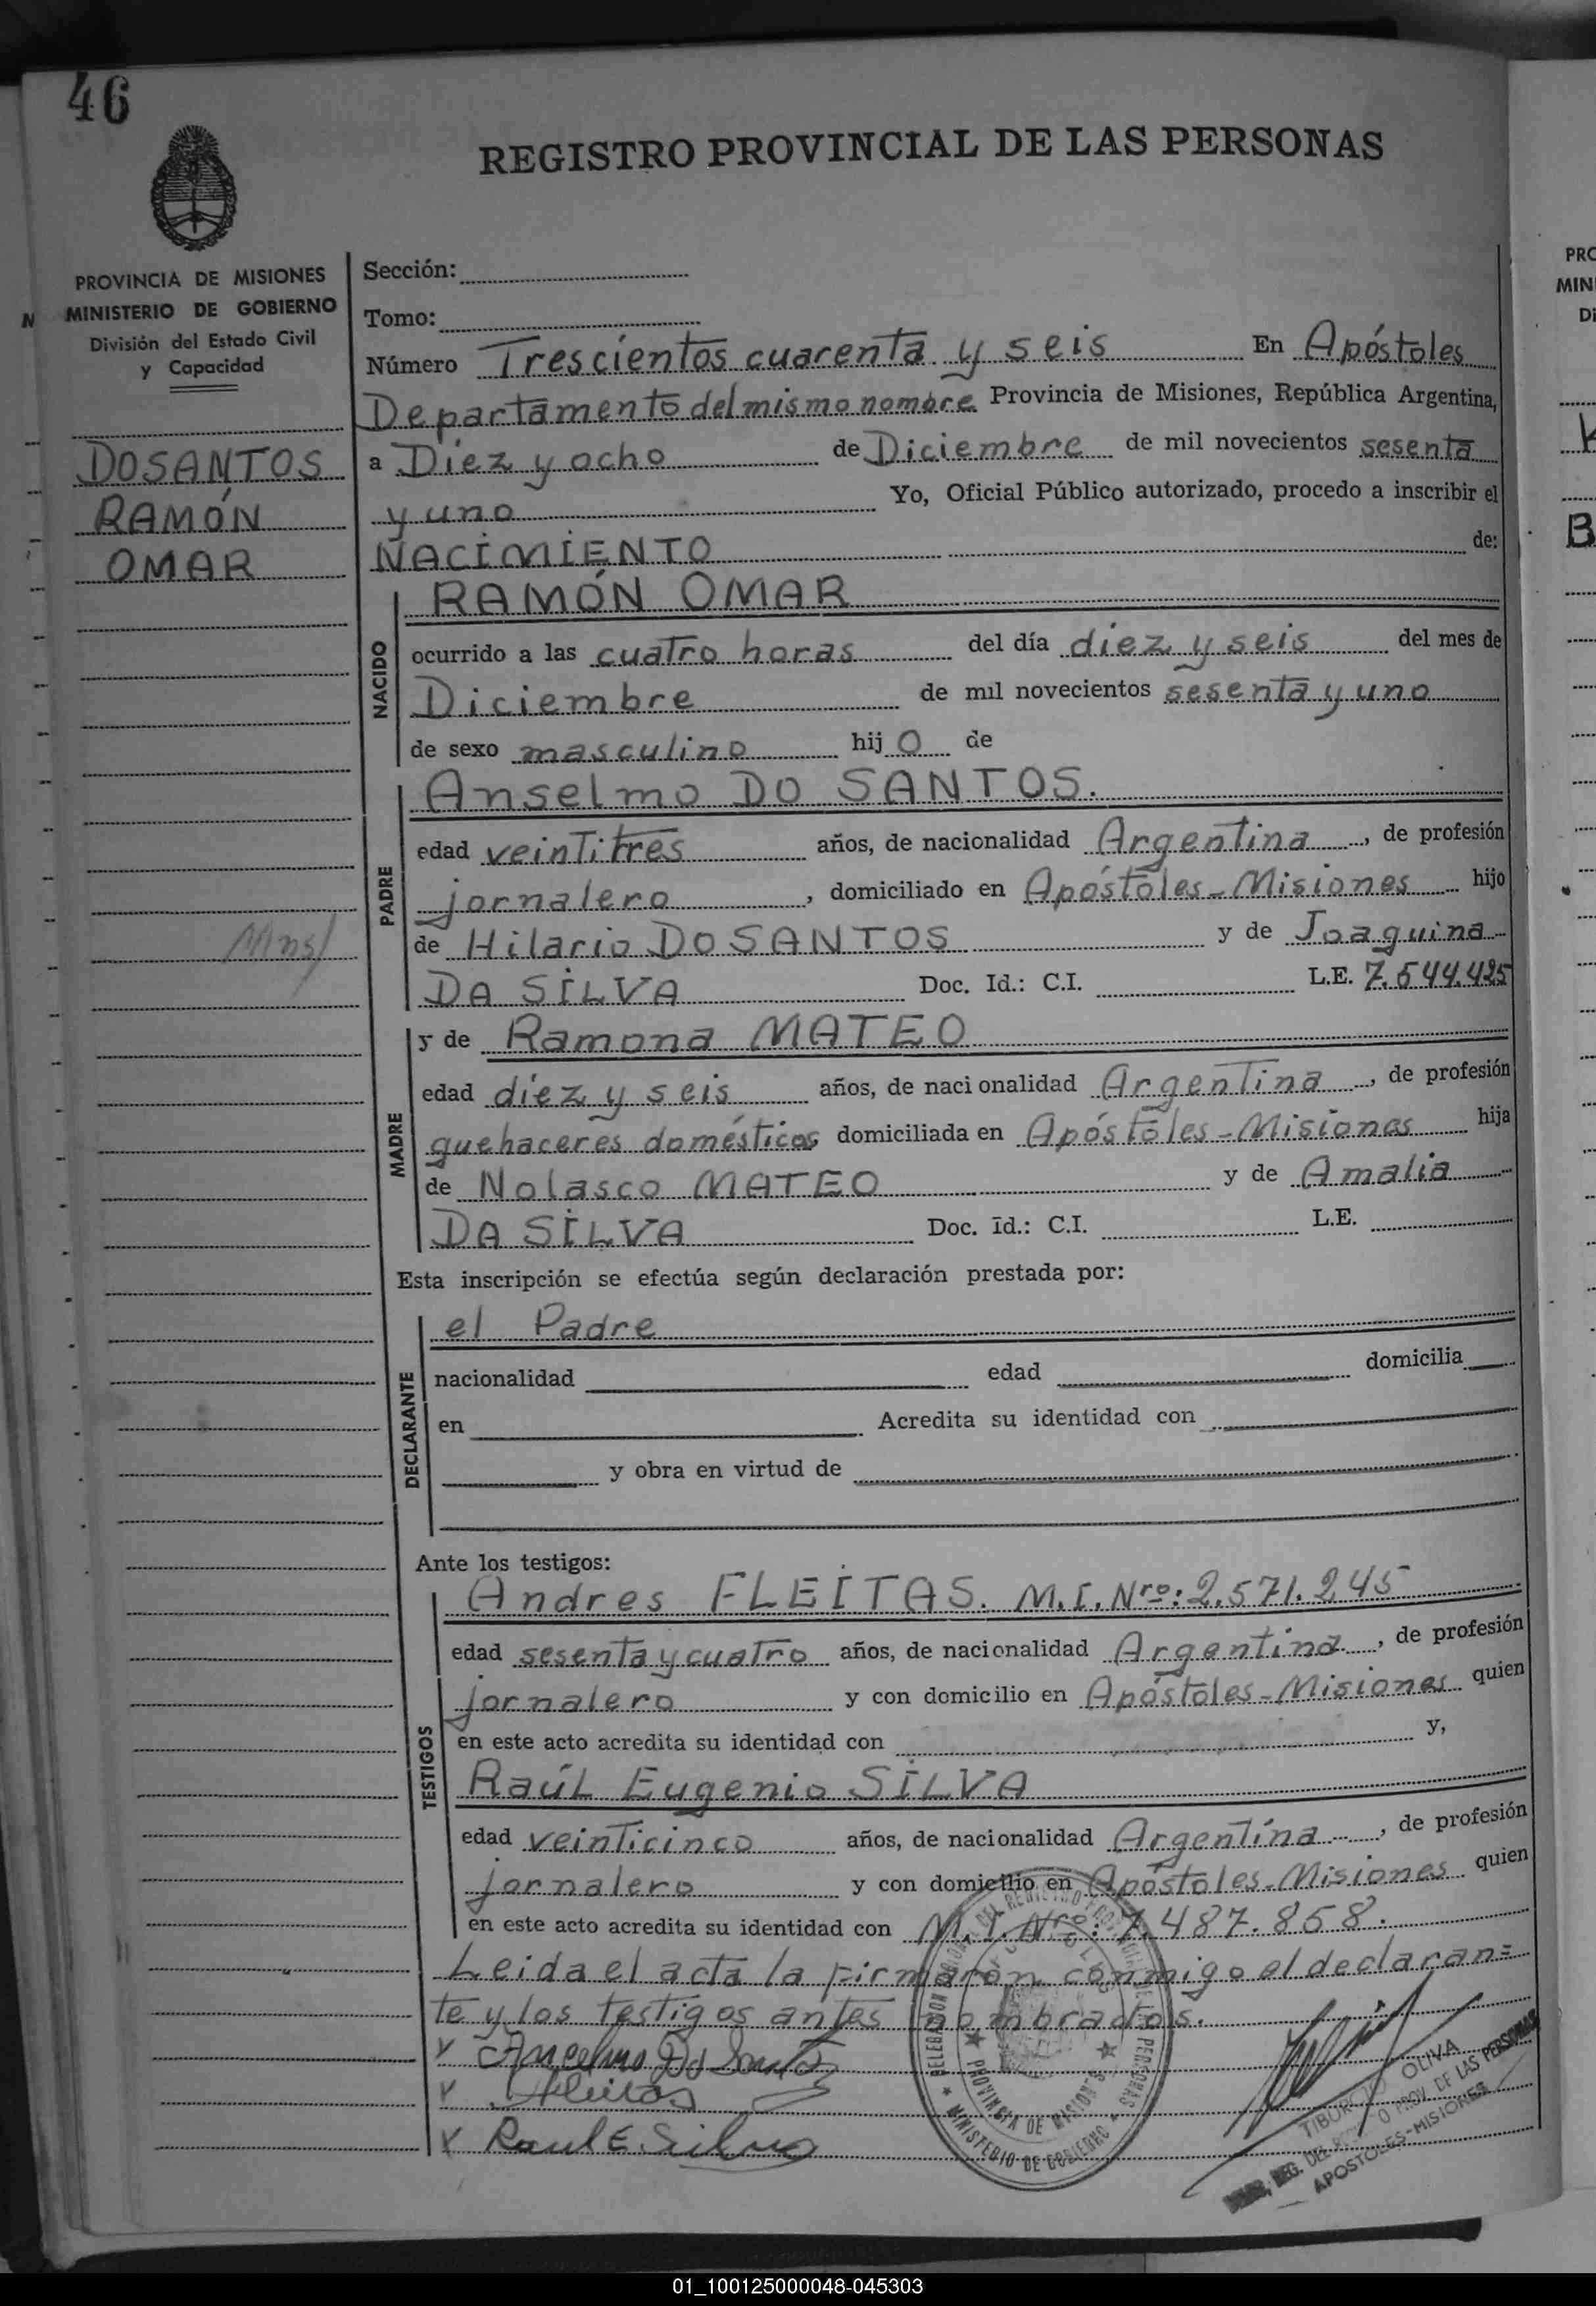 46
REGISTRO PROVINCIAL DE LAS PERSONAS
PROVINCIA DE MISIONES
MINISTERIO DE GOBIERNO
División del Estado Civil
y Capacidad
DOSANTOS
RAMÓN
OMAR
Sección:
Tomo:
Número Trescientos cuarenta y seis En Apóstoles
Departamento del mismo nombre Provincia de Misiones, República Argentina,
a Diez y ocho de Diciembre de mil novecientos sesenta
y uno Yo, Oficial Público autorizado, procedo a inscribir el
NACIMIENTO de:
NACIDO
RAMÓN OMAR
ocurrido a las cuatro horas del día diez y seis del mes de
Diciembre de mil novecientos sesenta y uno
de sexo masculino hijo de
PADRE
Anselmo DO SANTOS.
edad veintitres años, de nacionalidad Argentina, de profesión
jornalero, domiciliado en Apóstoles-Misiones hijo
de Hilario DO SANTOS y de Joaquina
DA SILVA Doc. Id.: C.I. L.E. 7.544.425
MADRE
y de Ramona MATEO
edad diez y seis años, de nacionalidad Argentina, de profesión
quehaceres domésticos domiciliada en Apóstoles-Misiones hija
de Nolasco MATEO y de Amalia
DA SILVA Doc. id.: C.I. L.E.
Esta inscripción se efectúa según declaración prestada por:
DECLARANTE
el Padre
nacionalidad edad domicilia
en Acredita su identidad con
y obra en virtud de
Ante los testigos:
TESTIGOS
Andres FLEITAS. M.I. Nro: 2.571.245
edad sesenta y cuatro años, de nacionalidad Argentina, de profesión
jornalero y con domicilio en Apóstoles-Misiones quien
en este acto acredita su identidad con y,
Raúl Eugenio SILVA
edad veinticinco años, de nacionalidad Argentina, de profesión
jornalero y con domicilio en Apóstoles-Misiones quien
en este acto acredita su identidad con M.I. Nro: 7.487.858.
Leida el acta la firmarón conmigo el declaran=
te y los testigos antes nombrados.
Ancelmo Do Santos
Fleitas
Raul E. Silva
PROVINCIA DE MISIONES
MINISTERIO DE GOBIERNO
TIBURCIO OLIVA
REG. DEL PROV. DE LAS PERSONAS
APOSTOLES-MISIONES
PRO
MIN
Di
01_100125000048-045303